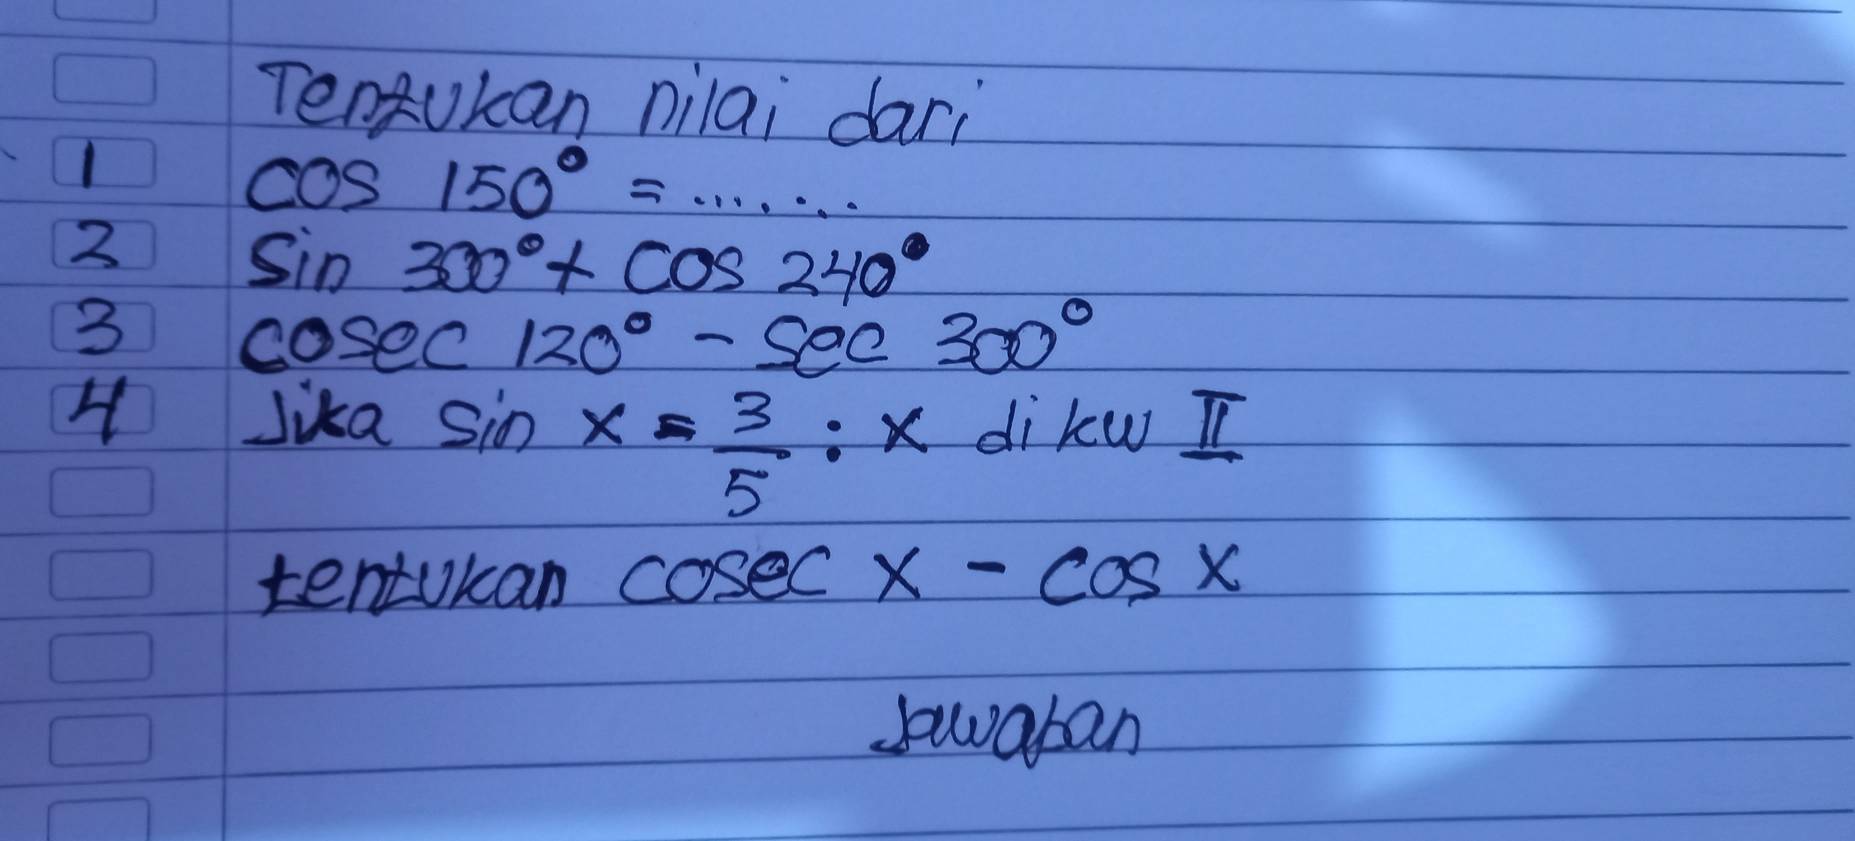 Tentukan nilai dari
1 cos 150° = ........
2 Sin 300° + cos 240°
3 cosec 120° - Sec 300°
4 Jika sin x = 3/5 : x di kw II
tentukan cosec x - cos x
Jawaban